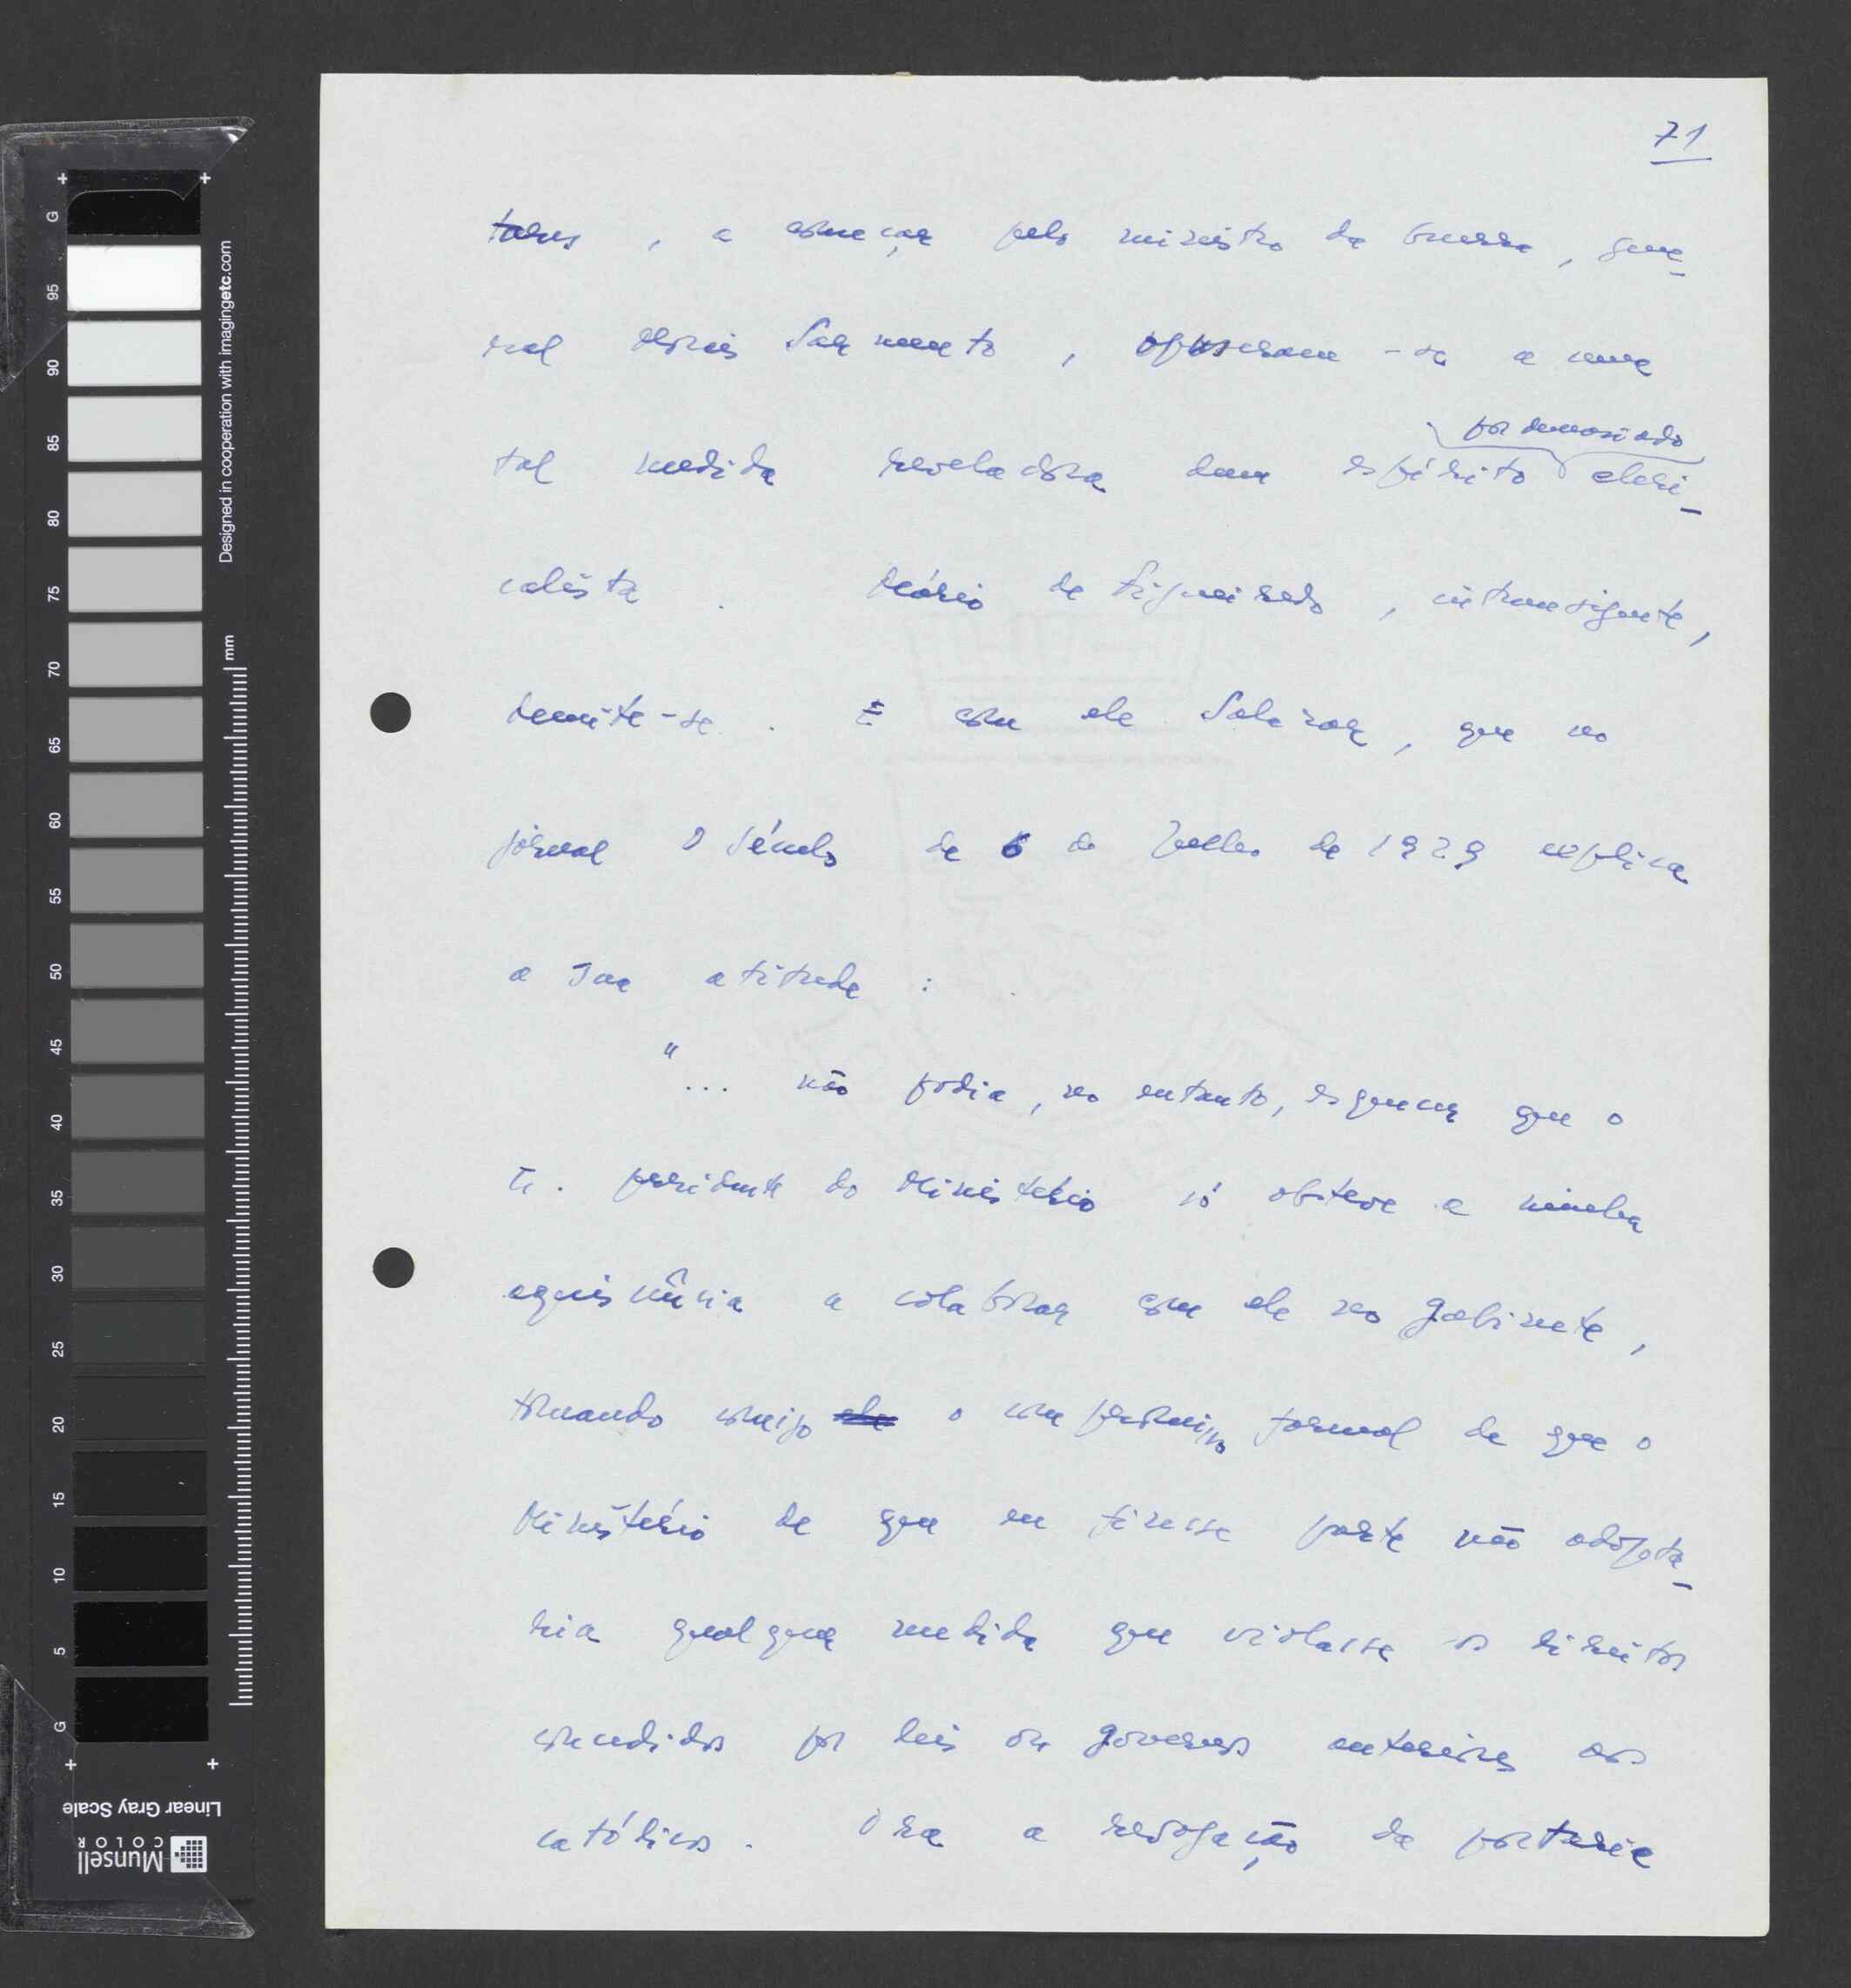 71
tares, a começar pelo ministro da Guerra, gene-
ral Morais Sarmento, opuseram-se a uma
por demasiado
tal medida reveladora dum espírito cleri-
calista. Mário de Figueiredo, intransigente,
demite-se. E com ele Salazar, que no
jornal O Século de 6 de Julho de 1929 explica
a sua atitude:
"... não podia, no entanto, esquecer que o
sr. presidente do Ministério só obteve a minha
aquiscência a colaborar com ele no gabinete,
tomando comigo o compromisso formal de que o
Ministério de que eu fizesse parte não adopta-
ria qualquer medida que violasse os direitos
concedidos por leis ou governos anteriores aos
católicos. Ora a revogação da portaria
G
95
90
85
80
75
70
65
60
55
50
45
40
35
30
25
20
15
10
5
G
mm
Designed in cooperation with imagingetc.com
Linear Gray Scale
Munsell
COLOR